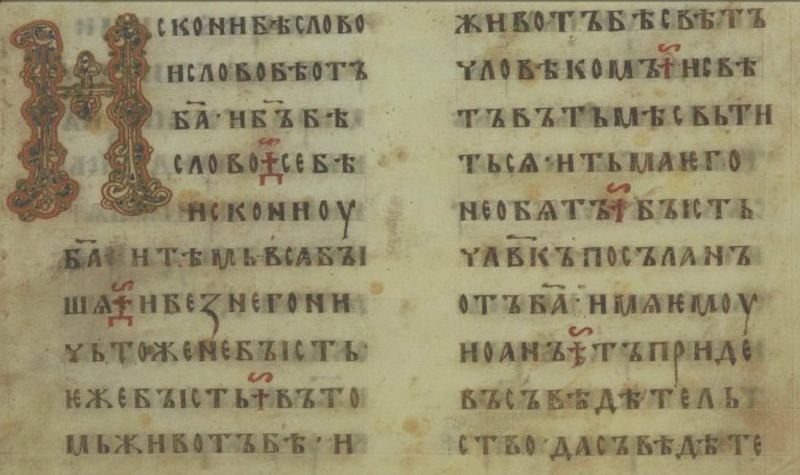 ИСКОНИБѢСЛОВО
ИСЛОВОБѢОТЪ
БА҃·ИБЪ҃БѢ
СЛОВО⁜СЕБѢ
ИСКОНИОУ
БА҃ ИТѢМЬВСѦБЪІ
ШѦ⁜ИБЕЗНЕГОНИ
ЧЬТОЖЕНЕБЪІСТЬ·
ѤЖЕБЪІСТЬ⁜ВЪТО
МЬЖИВОТЪБѢ·И
ЖИВОТЪБѢСВѢТЪ
ЧЛОВѢКОМЪ⁜ИСВѢ
ТЪВЪТЬМѢСВЬТИ
ТЬСѦ·ИТЬМАѤГО
НЕОБѦТЪ⁜БЪІСТЬ
ЧЛВ҃КЪПОСЪЛАНЪ
ОТЪБА҃·ИМѦѤМОУ
ИОАНЪ⁜ТЪПРИДЕ
ВЪСЪВѢДѢТЕЛЬ
СТВО·ДАСЪВѢДѢТЕ